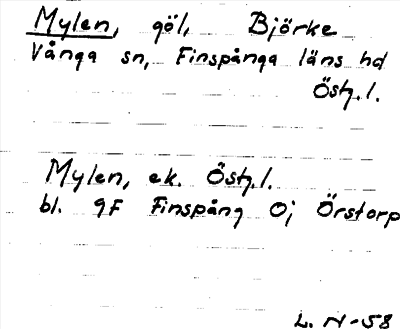 Mylen, göl, Björke
Vånga sn, Finspånga läns hd
Östg.l.
Mylen, ek. Östg.l.
bl. 9F Finspång O; Örstorp
L. N-58